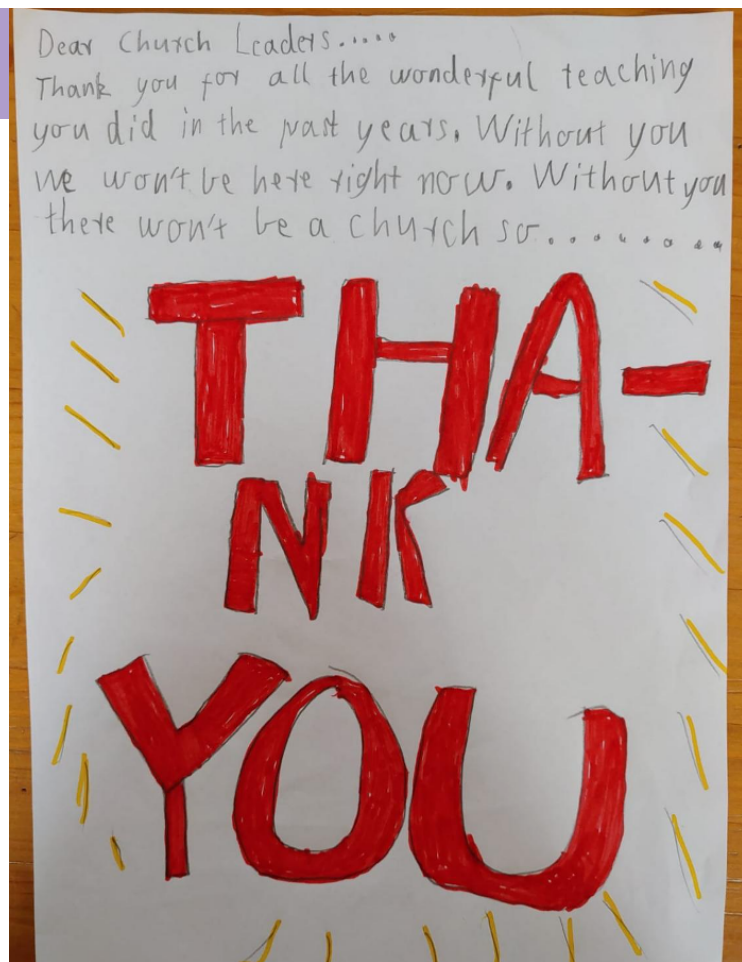 Dear Church Leaders.....
Thank you for all the wonderful teaching
you did in the past years. Without you
we won't be here right now. Without you
there won't be a church so.........
THA-
NK
YOU